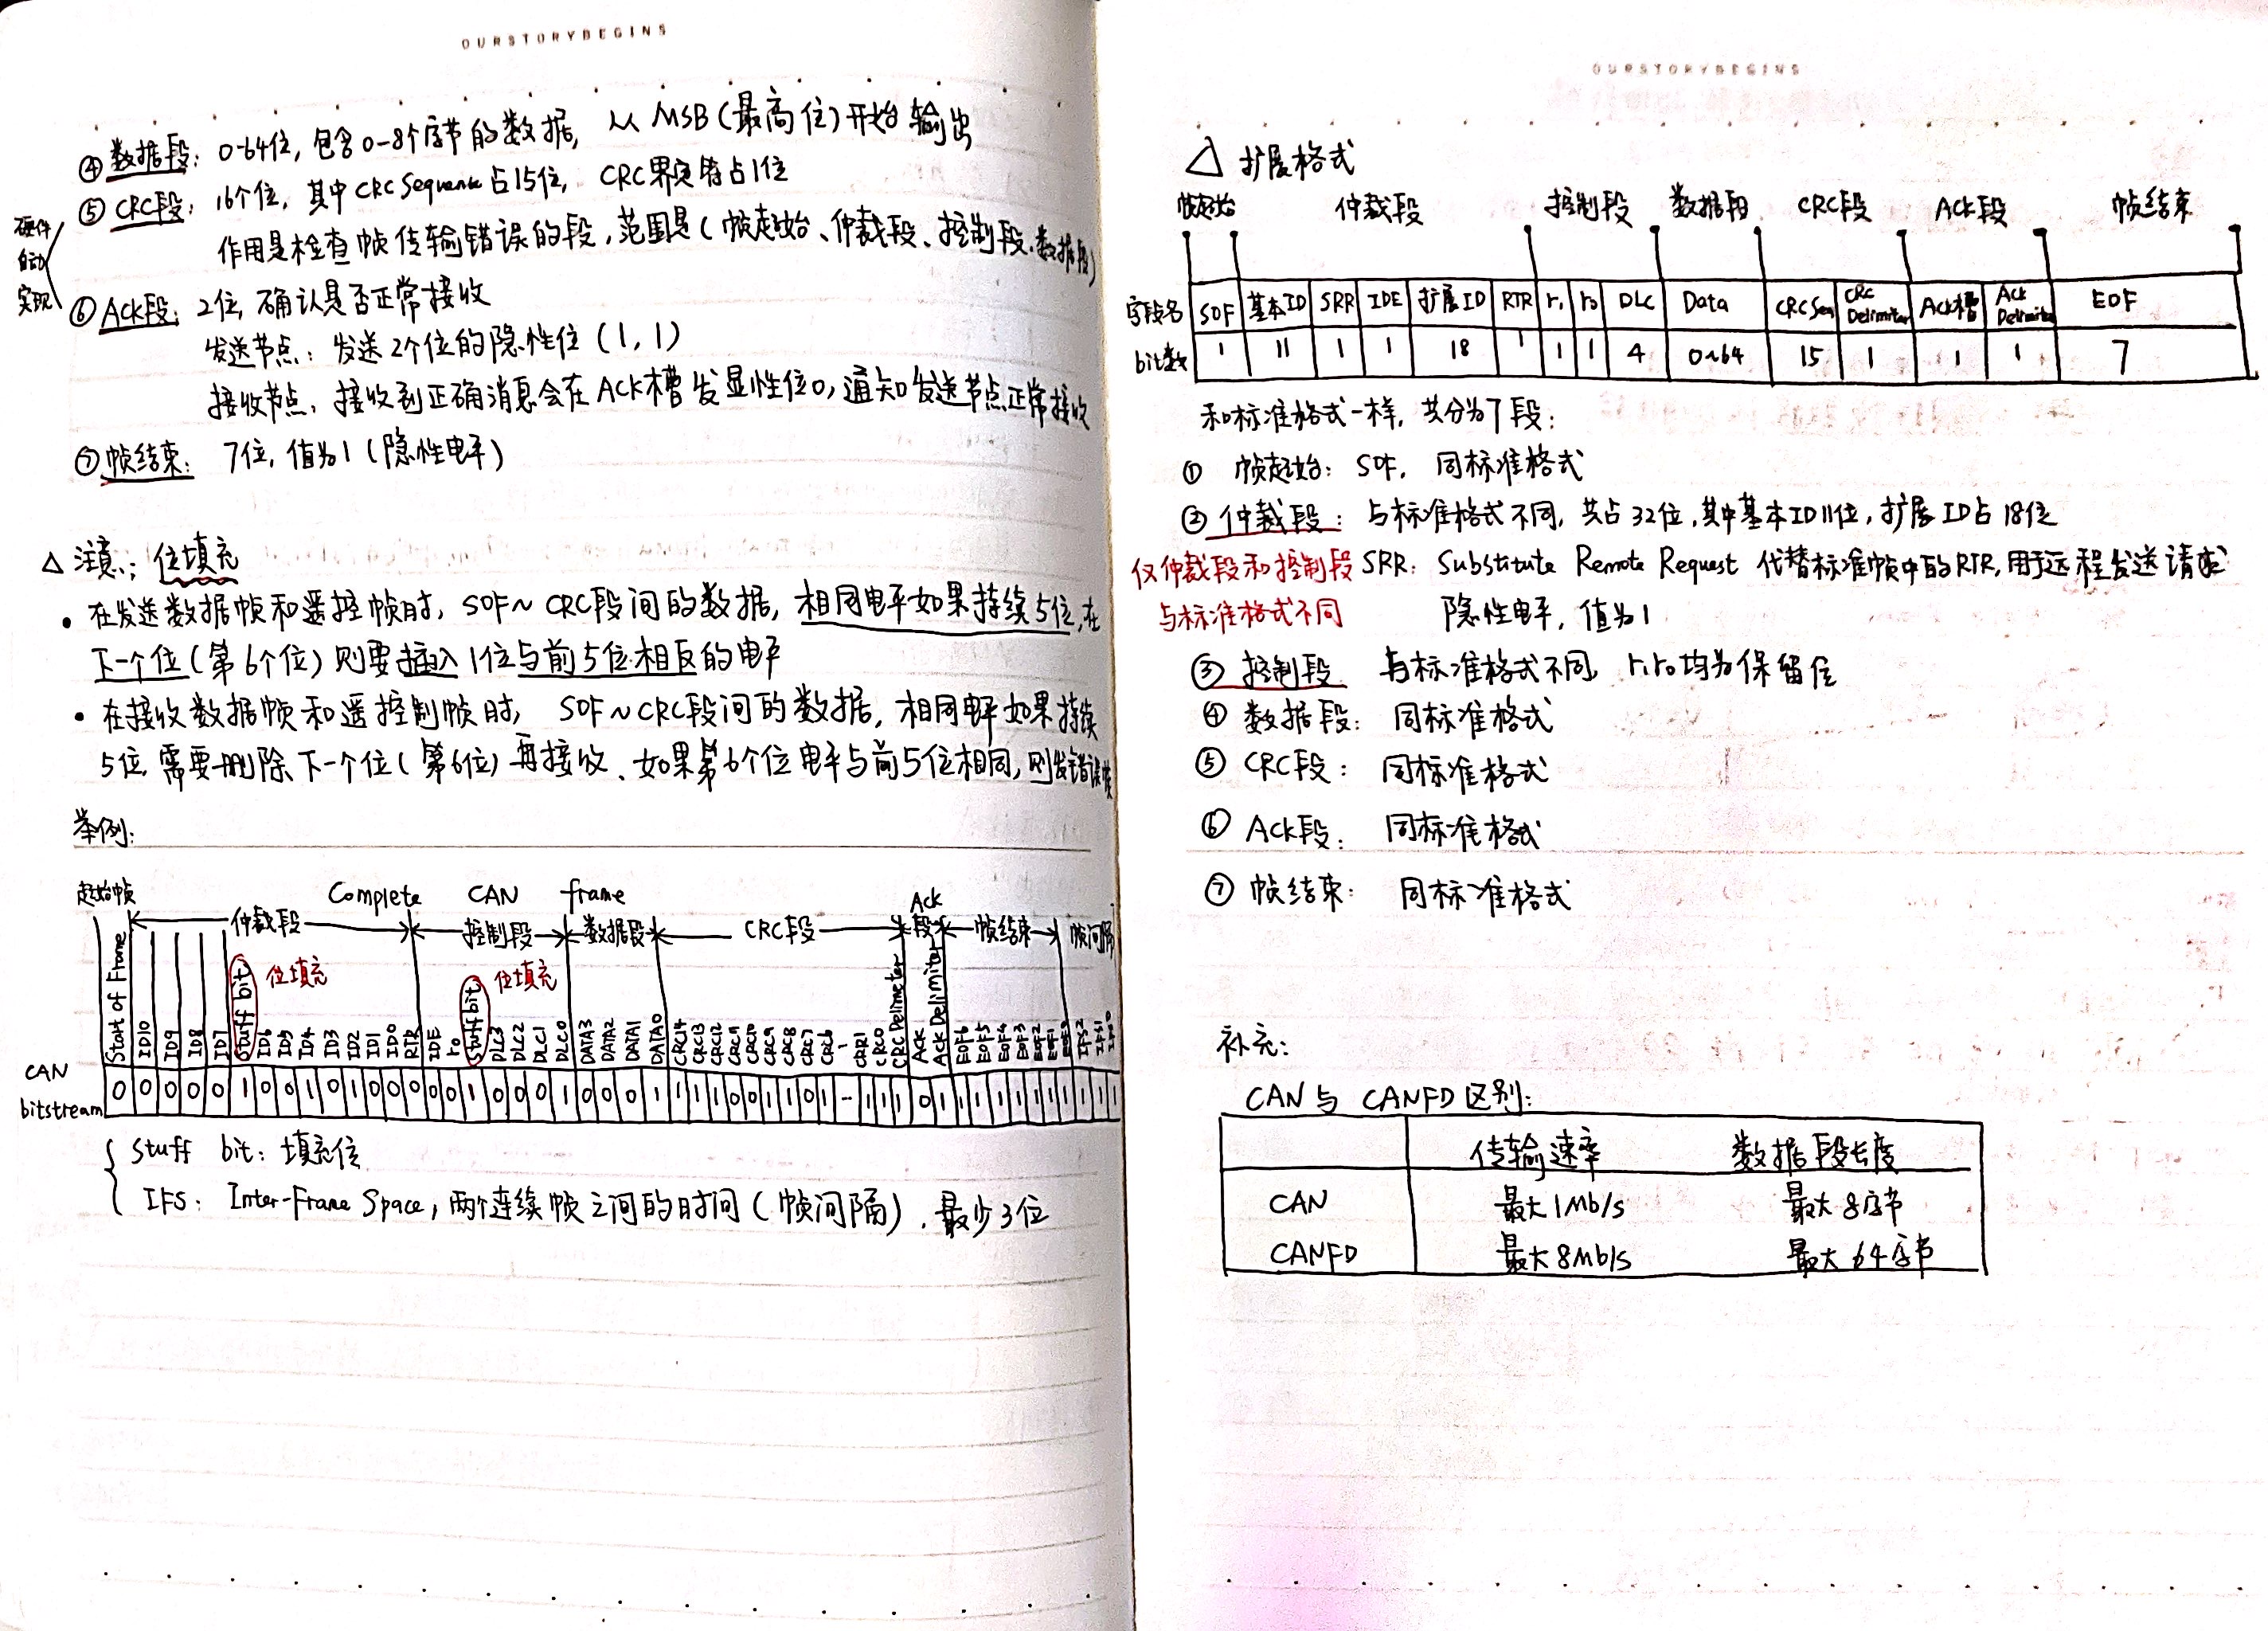 OURSTORYBEGINS
④ 数据段: 0-64位, 包含0-8个字节的数据, 从 MSB (最高位) 开始输出
⑤ CRC段: 16个位, 其中CRC Sequence 占15位, CRC界定符占1位
作用是检查帧传输错误的段, 范围是 (帧起始、仲裁段、控制段、数据段)
硬件
自动
实现
⑥ Ack段: 2位, 确认是否正常接收
发送节点: 发送2个位的隐性位 (1, 1)
接收节点: 接收到正确消息会在ACK槽发显性位0, 通知发送节点正常接收
⑦ 帧结束: 7位, 值为1 (隐性电平)
△ 注意: 位填充
• 在发送数据帧和遥控帧时, SOF~CRC段间的数据, 相同电平如果持续5位, 在
下一个位 (第6个位) 则要插入1位与前5位相反的电平
• 在接收数据帧和遥控制帧时, SOF~CRC段间的数据, 相同电平如果持续
5位, 需要删除下一个位 (第6位) 再接收、如果第6个位电平与前5位相同, 则发错误帧
举例:
起始帧 Complete CAN frame
仲裁段 控制段 数据段 CRC段 Ack段 帧结束 帧间隔
位填充 位填充
Start of Frame ID10 ID9 ID8 ID7 Stuff bit ID6 ID5 ID4 ID3 ID2 ID1 ID0 RTR IDE r0 Stuff bit DLC3 DLC2 DLC1 DLC0 DATA3 DATA2 DATA1 DATA0 CRC14 CRC13 CRC12 CRC11 CRC10 CRC9 CRC8 CRC7 CRC6 - CRC1 CRC0 CRC Delimeter ACK ACK Delimiter EOF6 EOF5 EOF4 EOF3 EOF2 EOF1 EOF0 IFS2 IFS1
CAN
bitstream 0 0 0 0 0 1 0 0 1 0 1 0 0 0 0 0 1 0 0 0 1 0 0 0 1 1 1 1 0 0 1 1 0 1 - 1 1 1 0 1 1 1 1 1 1 1 1 1 1 1
Stuff bit: 填充位
IFS: Inter-Frame Space, 两个连续帧之间的时间 (帧间隔), 最少3位
OURSTORYBEGINS
△ 扩展格式
帧起始 仲裁段 控制段 数据段 CRC段 ACK段 帧结束
字段名 SOF 基本ID SRR IDE 扩展ID RTR r1 r0 DLC Data CRC Seq CRC Delimiter Ack槽 Ack Delimiter EOF
bit数 1 11 1 1 18 1 1 1 4 0~64 15 1 1 1 7
和标准格式一样, 共分为7段:
① 帧起始: SOF, 同标准格式
② 仲裁段: 与标准格式不同, 共占32位, 其中基本ID11位, 扩展ID占18位
仅仲裁段和控制段
与标准格式不同
SRR: Substitute Remote Request 代替标准帧中的RTR, 用于远程发送请求
隐性电平, 值为1
③ 控制段 与标准格式不同, r1r0均为保留位
④ 数据段: 同标准格式
⑤ CRC段: 同标准格式
⑥ Ack段: 同标准格式
⑦ 帧结束: 同标准格式
补充:
CAN与 CANFD区别:
传输速率 数据段长度
CAN 最大1Mb/s 最大8字节
CANFD 最大8Mb/s 最大64字节